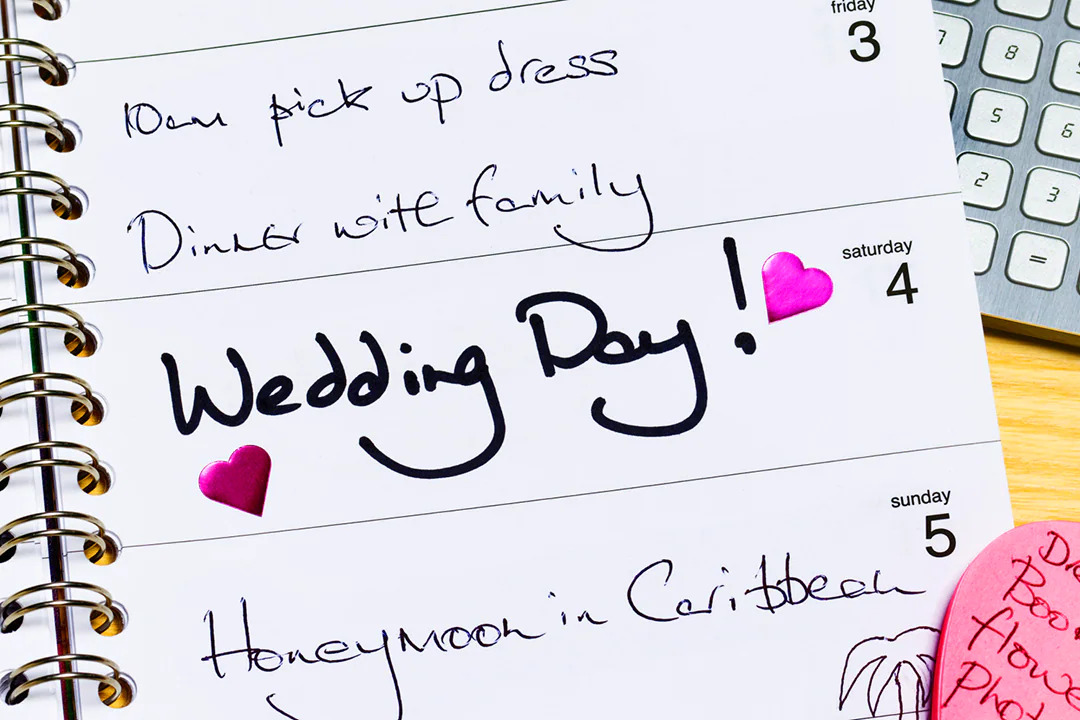 friday
3
10am pick up dress
Dinner with family
saturday
4
Wedding Day!
sunday
5
Honeymoon in Caribbean
7
8
5
6
2
3
=